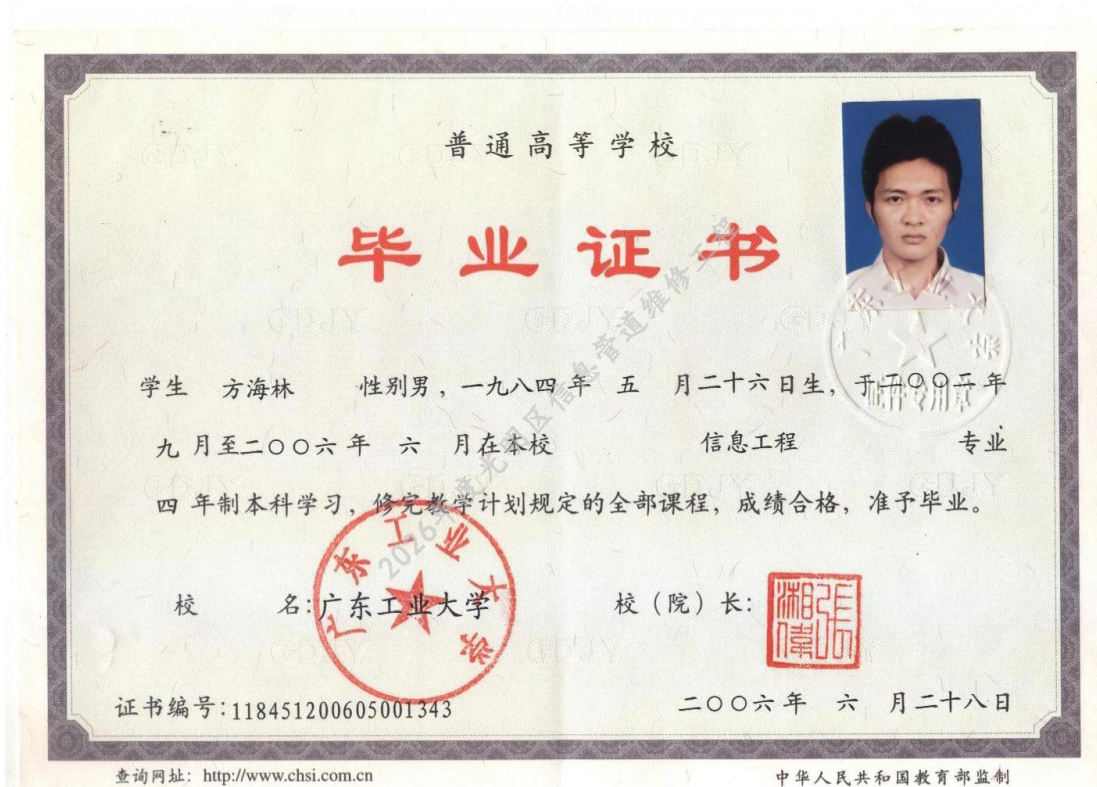 普通高等学校
毕业证书
学生 方海林 性别男，一九八四年 五 月二十六日生，于二〇〇二年
九 月至二〇〇六年 六 月在本校 信息工程 专业
四 年制本科学习，修完教学计划规定的全部课程，成绩合格，准予毕业。
校 名：广东工业大学
校（院）长：
张湘伟
广东工业大学
证件专用章
证书编号：118451200605001343
二〇〇六年 六 月二十八日
查询网址：http://www.chsi.com.cn
中华人民共和国教育部监制